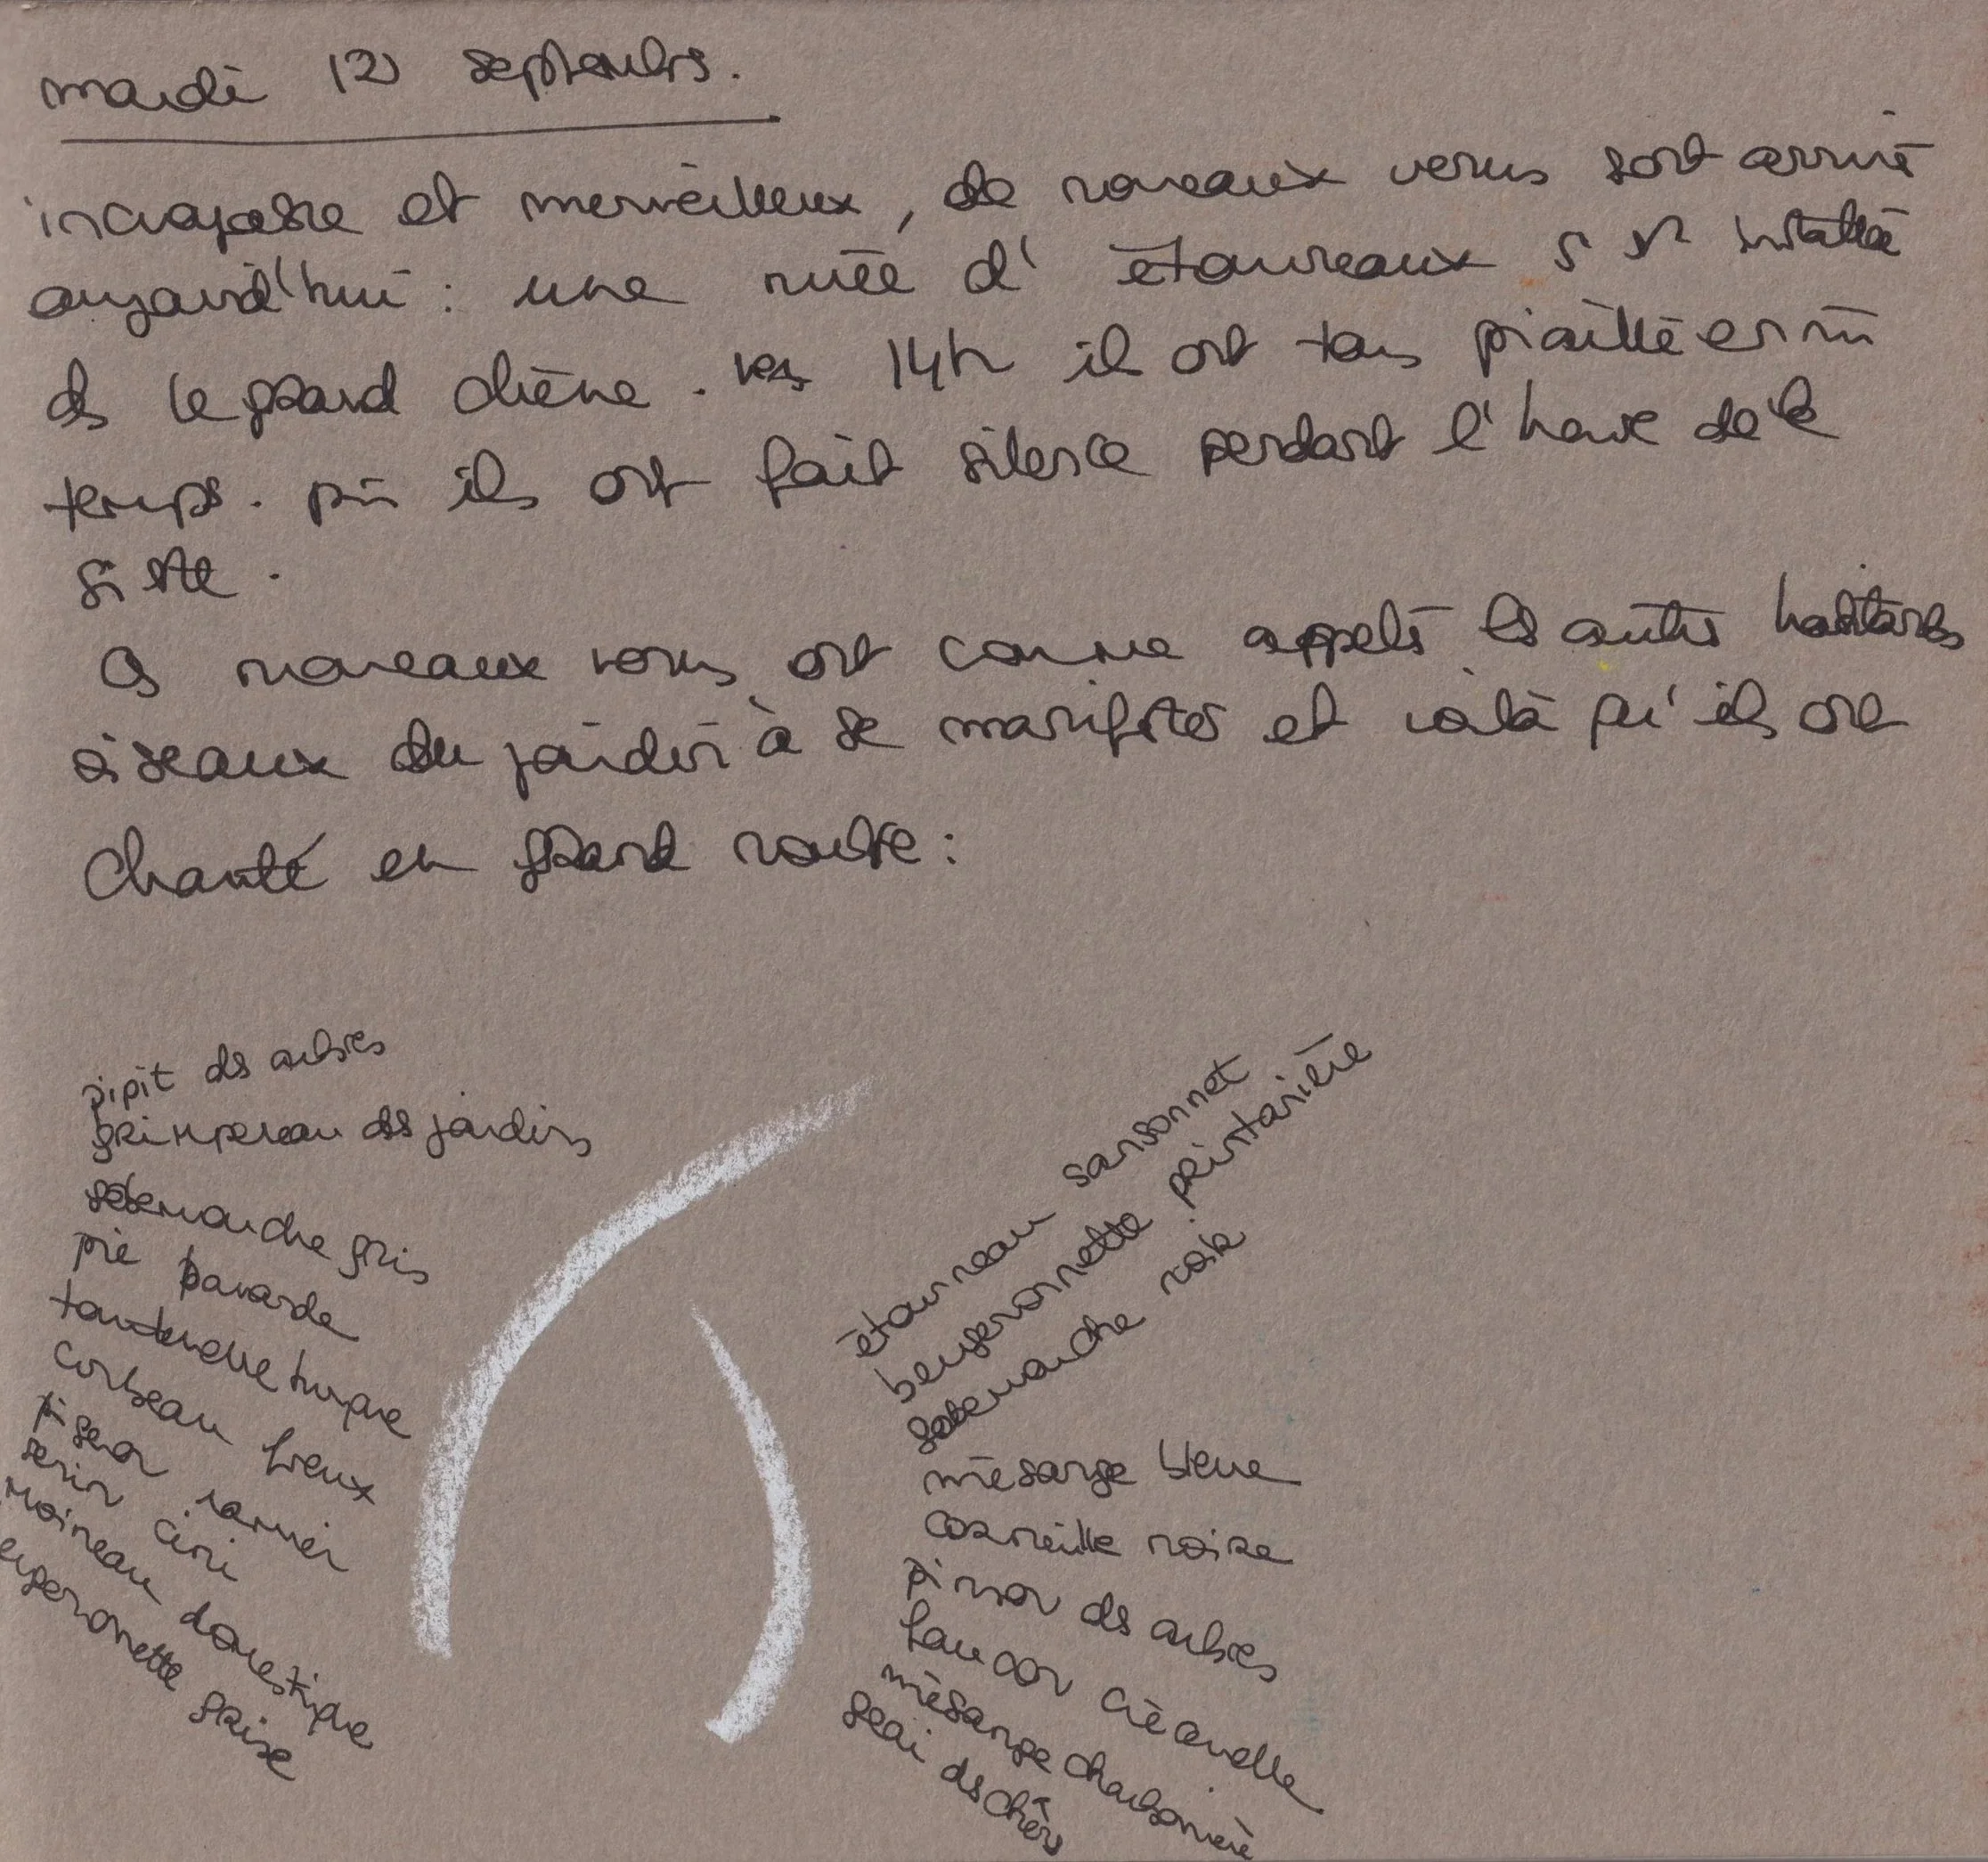 mardi 12 septembre.
incroyable et merveilleux, de nouveaux venus sont arrivé
aujourd'hui : une nuée d'étourneaux s'est installée
ds le grand chêne. vers 14h il ont tous piaillé en mm
temps. puis ils ont fait silence pendant l'heure de la
sieste.
Ces nouveaux venus ont comme appelé les autres habitants
oiseaux du jardin à se manifester et voilà qu'ils ont
chanté en grand nombre :
pipit des arbres
grimpereau des jardins
gobemouche gris
pie bavarde
tourterelle turque
corbeau freux
pigeon ramier
serin cini
moineau domestique
bergeronnette grise
étourneau sansonnet
bergeronnette printanière
gobemouche noir
mésange bleue
corneille noire
pinson des arbres
faucon crécerelle
mésange charbonnière
geai des chênes